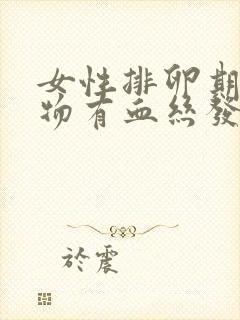 女性排卵期
物有血絲發
於震